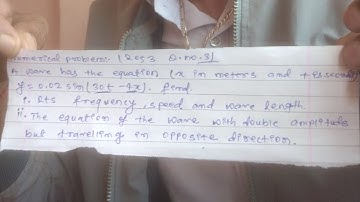 Numerical problem:- [2053 Q.no.3]
A wave has the equation (x in meters and t in seconds)
y = 0.02 sin(30t - 4x). Find.
i. Its frequency, speed and wave length
ii. The equation of the wave with double amplitude
but travelling in opposite direction.